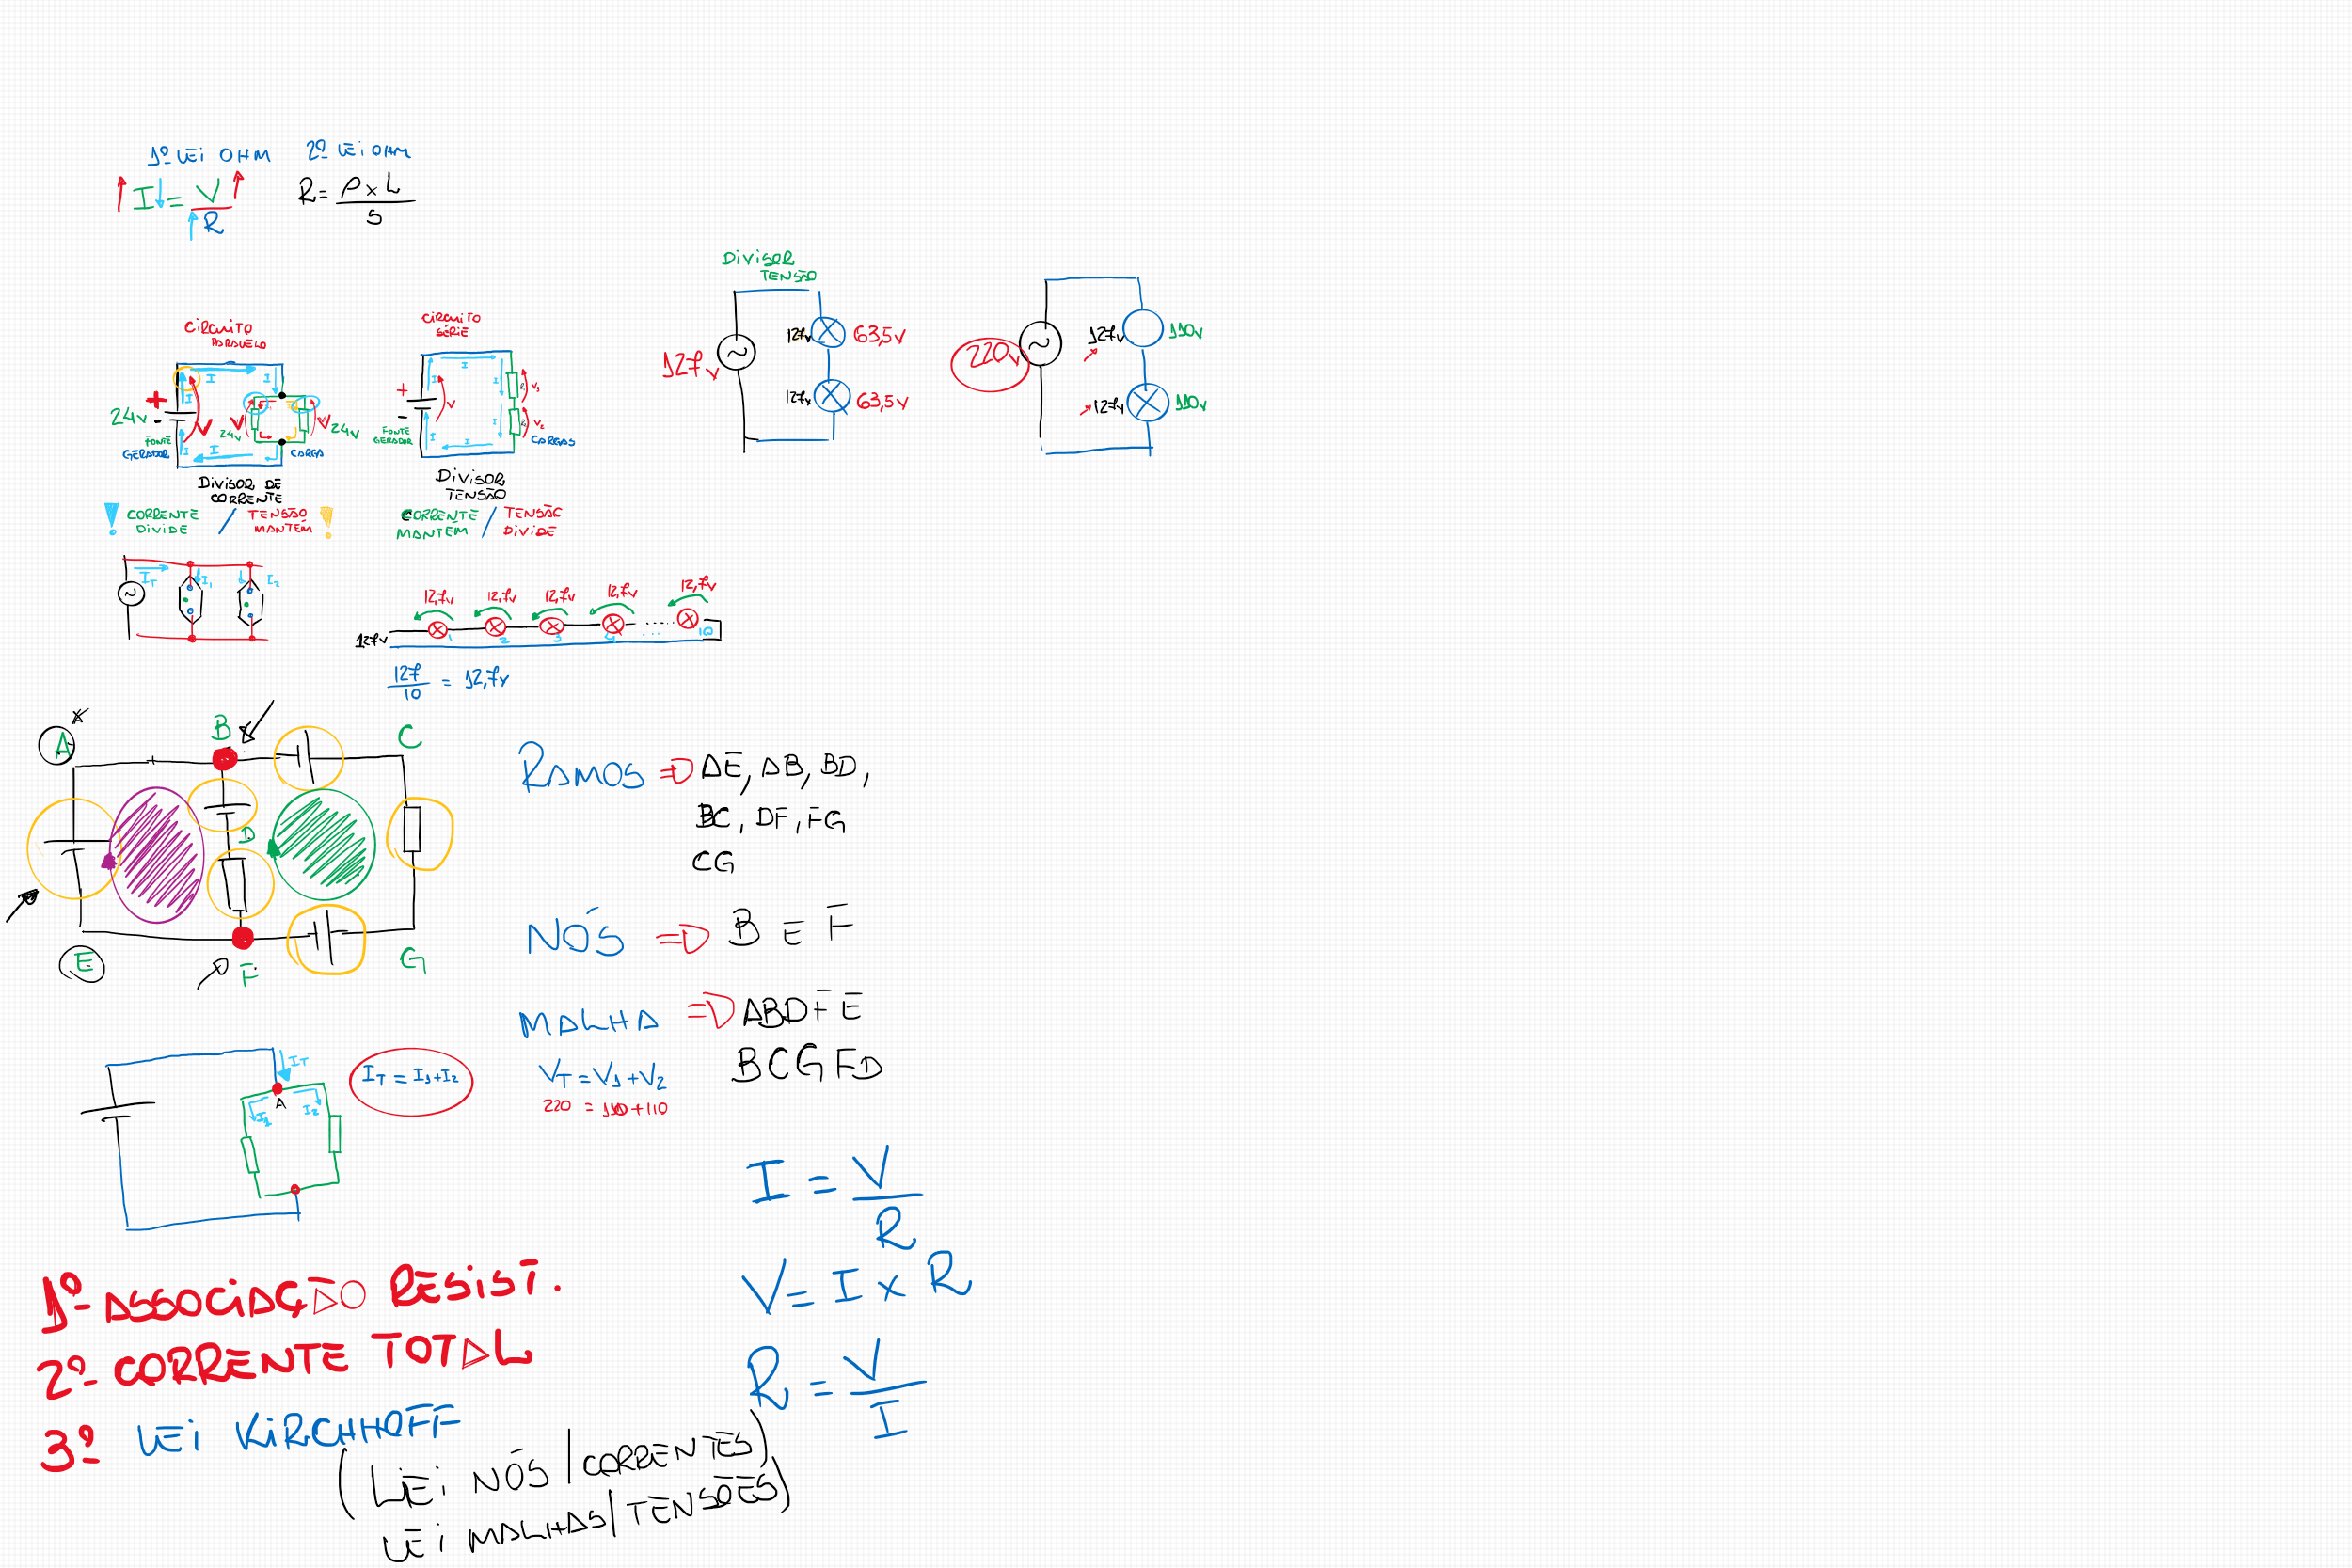 1º LEI OHM
I = V
R
2º LEI OHM
R = ρ x L
S
CIRCUITO
PARALELO
I
I
I
+
24V
-
V
V
24V
V
24V
FONTE
GERADOR
I
I
CARGA
DIVISOR DE
CORRENTE
! CORRENTE
DIVIDE
/ TENSÃO
MANTÉM !
CIRCUITO
SÉRIE
I
I
I
+
-
V
R1 V1
R2 V2
I
I
I
FONTE
GERADOR
CARGAS
DIVISOR
TENSÃO
CORRENTE
MANTÉM
/ TENSÃO
DIVIDE
DIVISOR
TENSÃO
127V
127V 63,5V
127V 63,5V
220V
127V 110V
127V 110V
IT I1 I2
12,7V 12,7V 12,7V 12,7V 12,7V
127V
1 2 3 4 ..... ... 10
127
10 = 12,7V
A B C
D
E F G
RAMOS => AE, AB, BD,
BC, DF, FG
CG
NÓS => B E F
MALHA => ABDFE
BCGFD
VT = V1 + V2
220 = 110 + 110
IT
A
I1 I2
IT = I1 + I2
I = V
R
V = I x R
R = V
I
1º ASSOCIAÇÃO RESIST.
2º CORRENTE TOTAL
3º LEI KIRCHHOFF
(LEI NÓS | CORRENTES)
LEI MALHAS | TENSÕES)